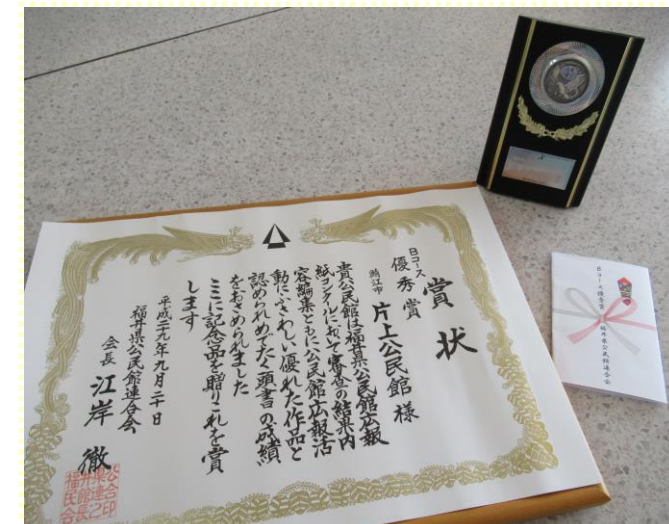 賞状
Bコース
優秀賞
鯖江市 片上公民館 様
貴公民館は福井県公民館広報
紙コンクールにおいて審査の結果内
容編集ともに公民館広報活
動にふさわしい優れた作品と
認められめでたく頭書の成績
をおさめられました
ここに記念品を贈りこれを賞
します
平成二十九年九月二十日
福井県公民館連合会
会長 江岸 徹
Bコース優秀賞
福井県公民館連合会